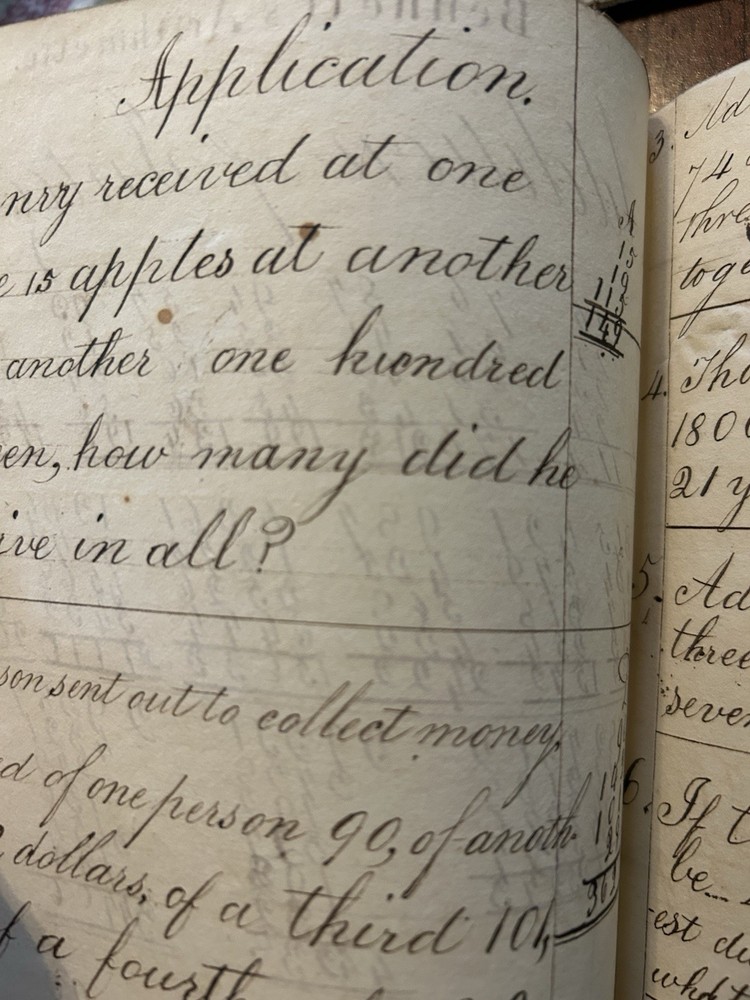 Application.
nry received at one
e 15 apples at another
another one hundred
en, how many did he
ive in all?
A
15
19
115
149
son sent out to collect money,
d of one person 90, of anoth-
dollars, of a third 101,
f a fourth
3. Ad
74
thre
toge
4. Tho
180
21 y
5. Ad
three
seven
6. If t
be
est di
what